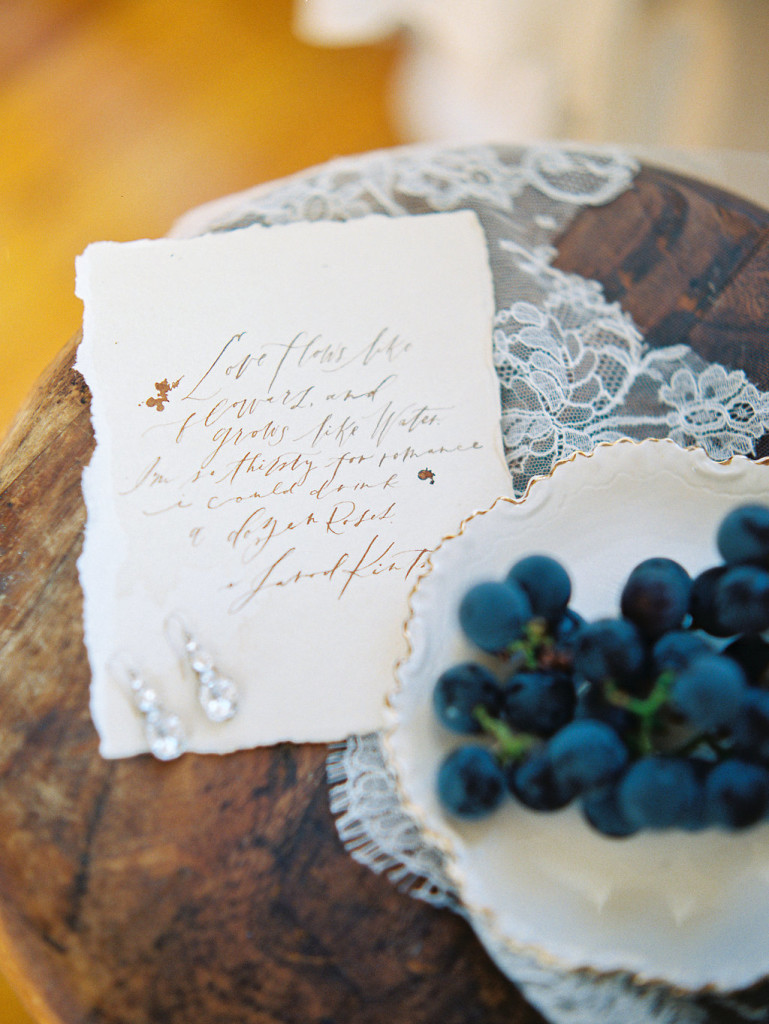 Love flows like
flowers, and
grows like Water.
Im so thirsty for romance
i could drink
a dozen Roses.
- Jarod Kintz